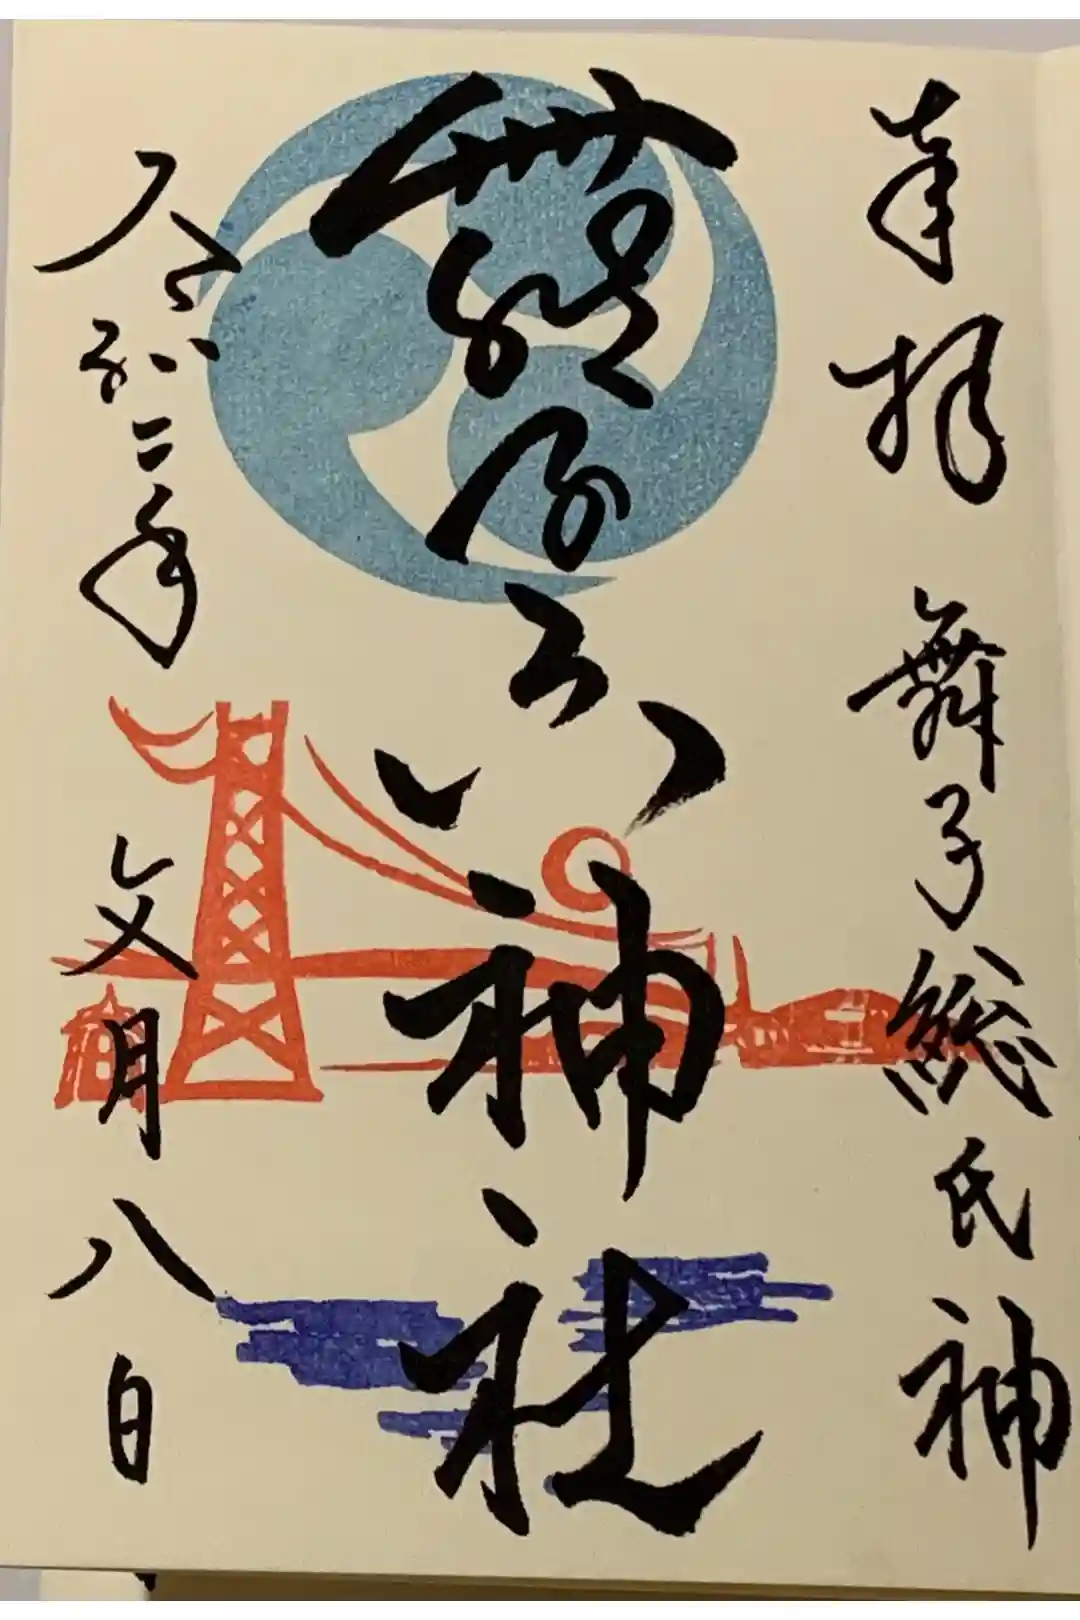 奉拝 舞子総氏神
舞子六神社
令和二年 文月八日